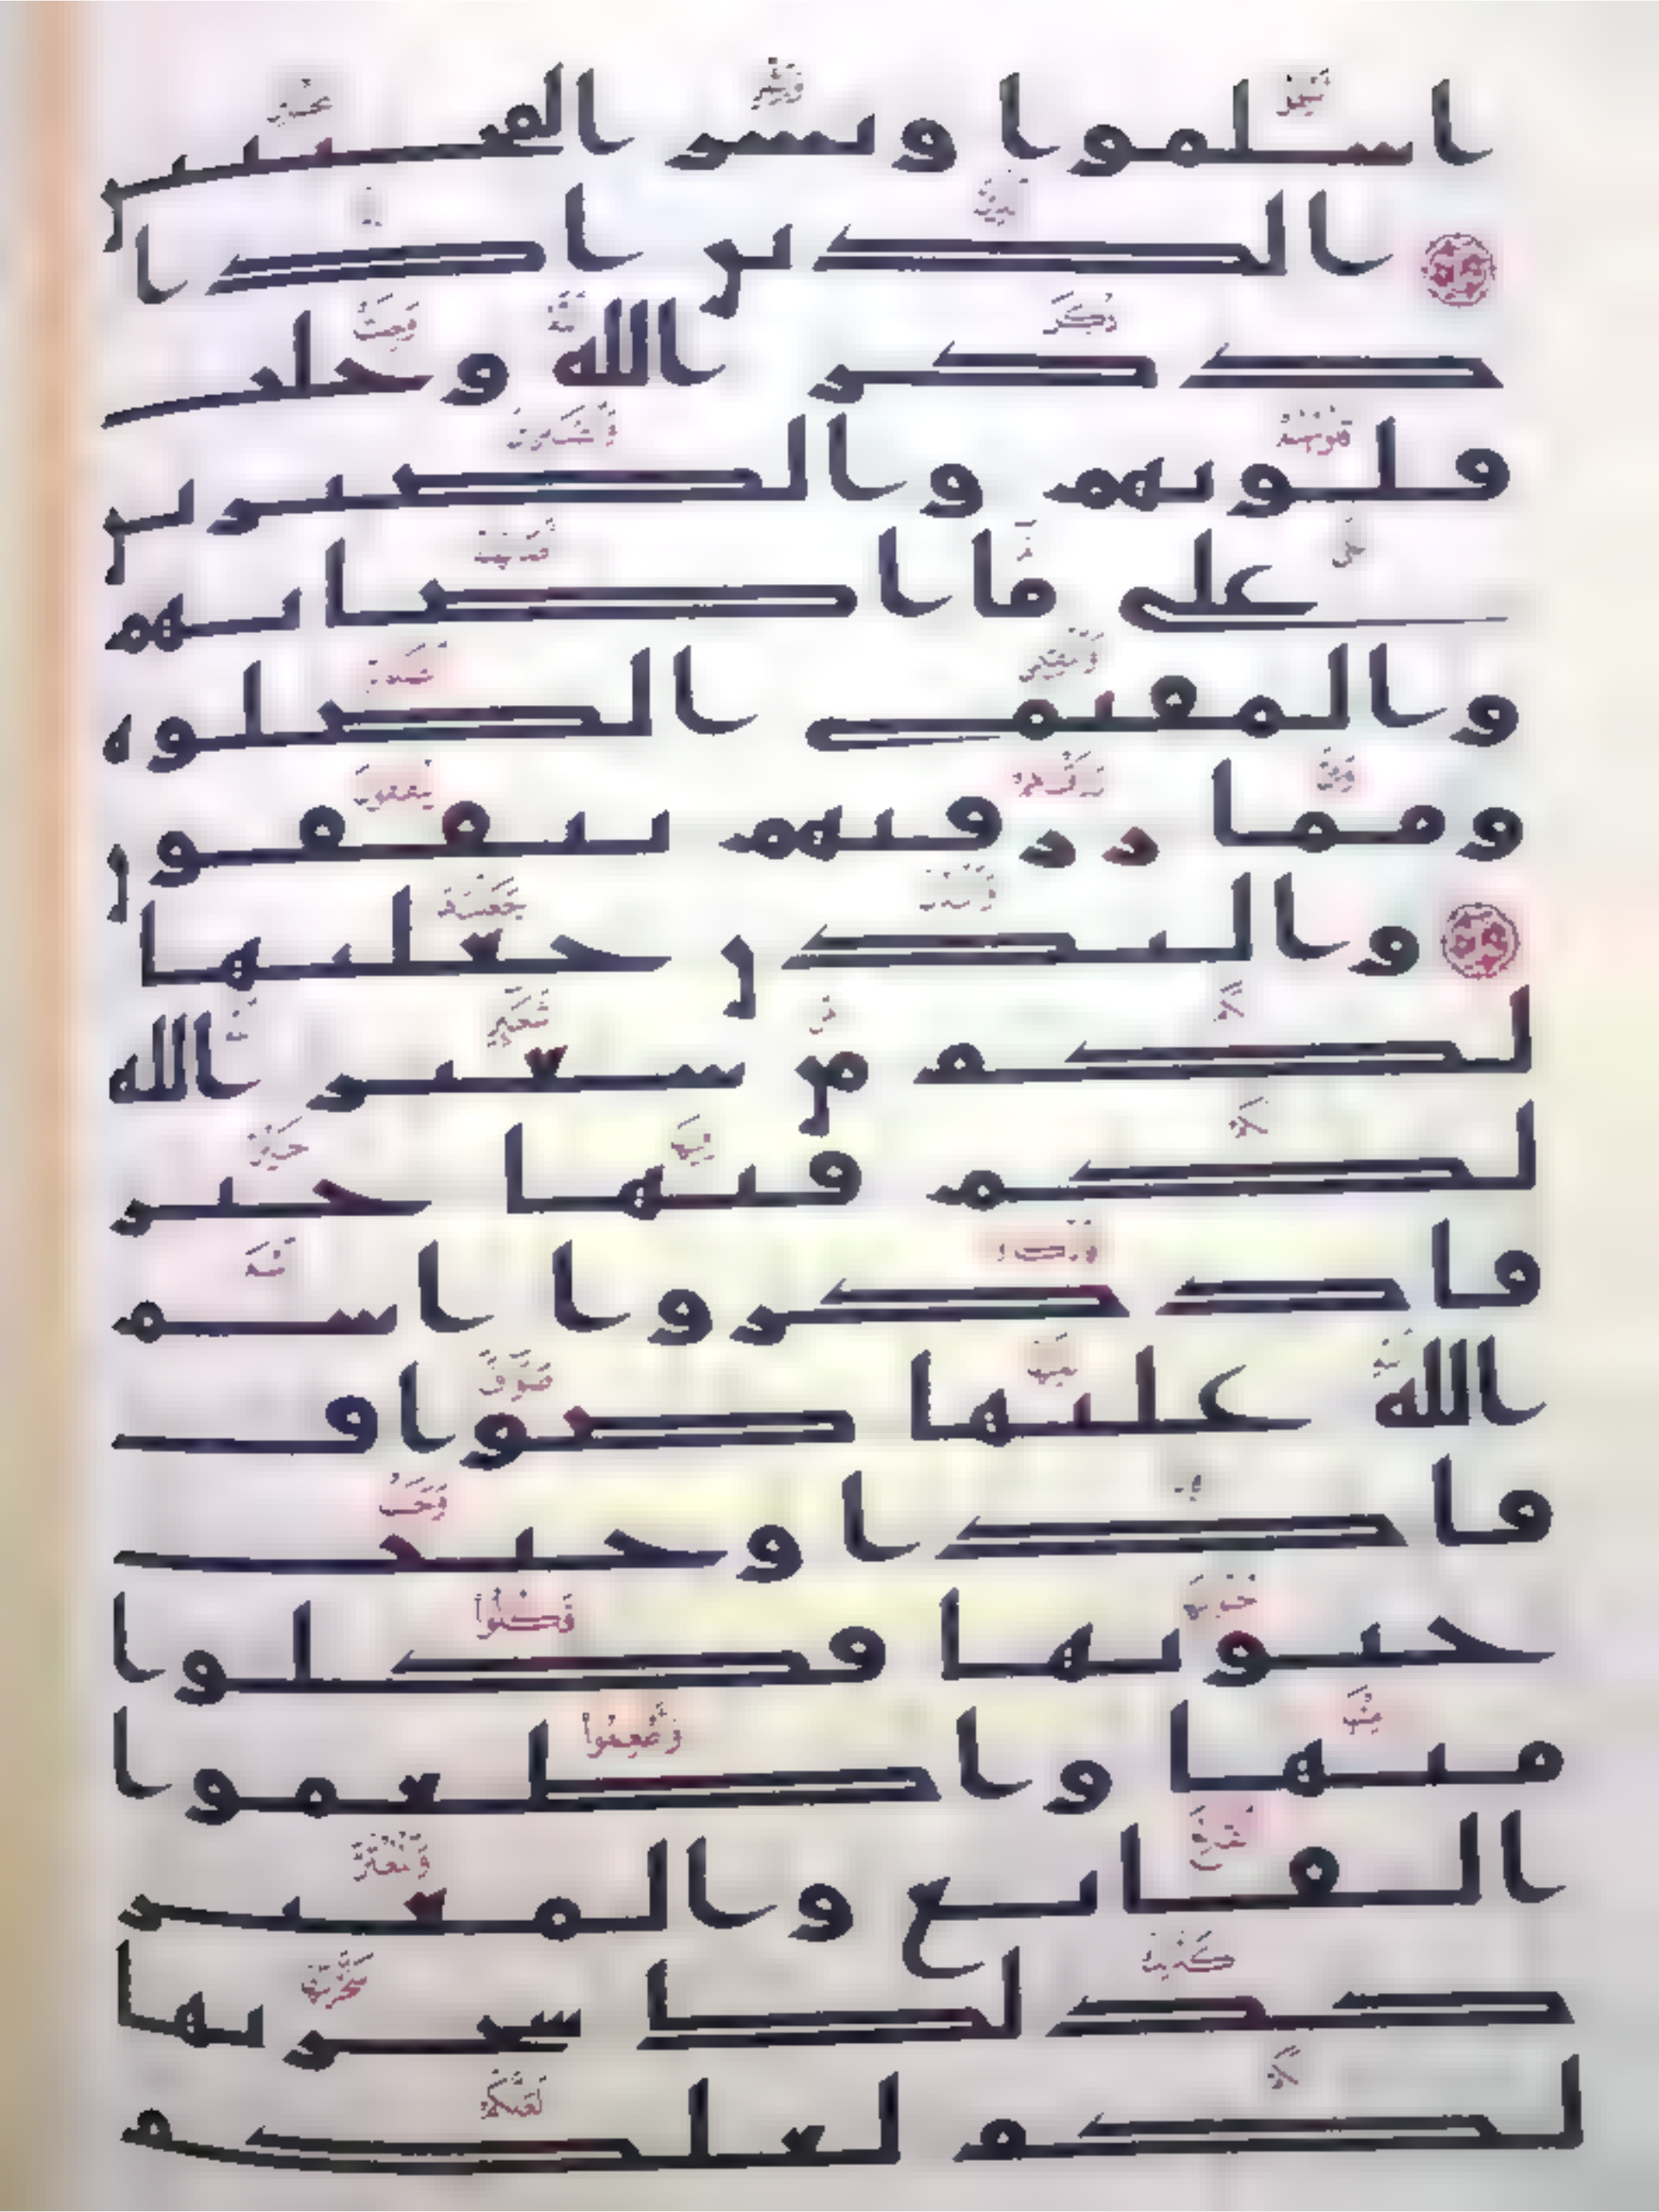 اسلموا وبشر المخبتين
الذين اذا
ذكر الله وجلت
قلوبهم والصبرين
على ما اصابهم
والمقيمى الصلوه
ومما رزقنهم ينفقون
والبدن جعلنها
لكم من شعير الله
لكم فيها خير
فاذكروا اسم
الله عليها صواف
فاذا وجبت
جنوبها فكلوا
منها واطعموا
القانع والمعتر
كذلك سخرنها
لكم لعلكم